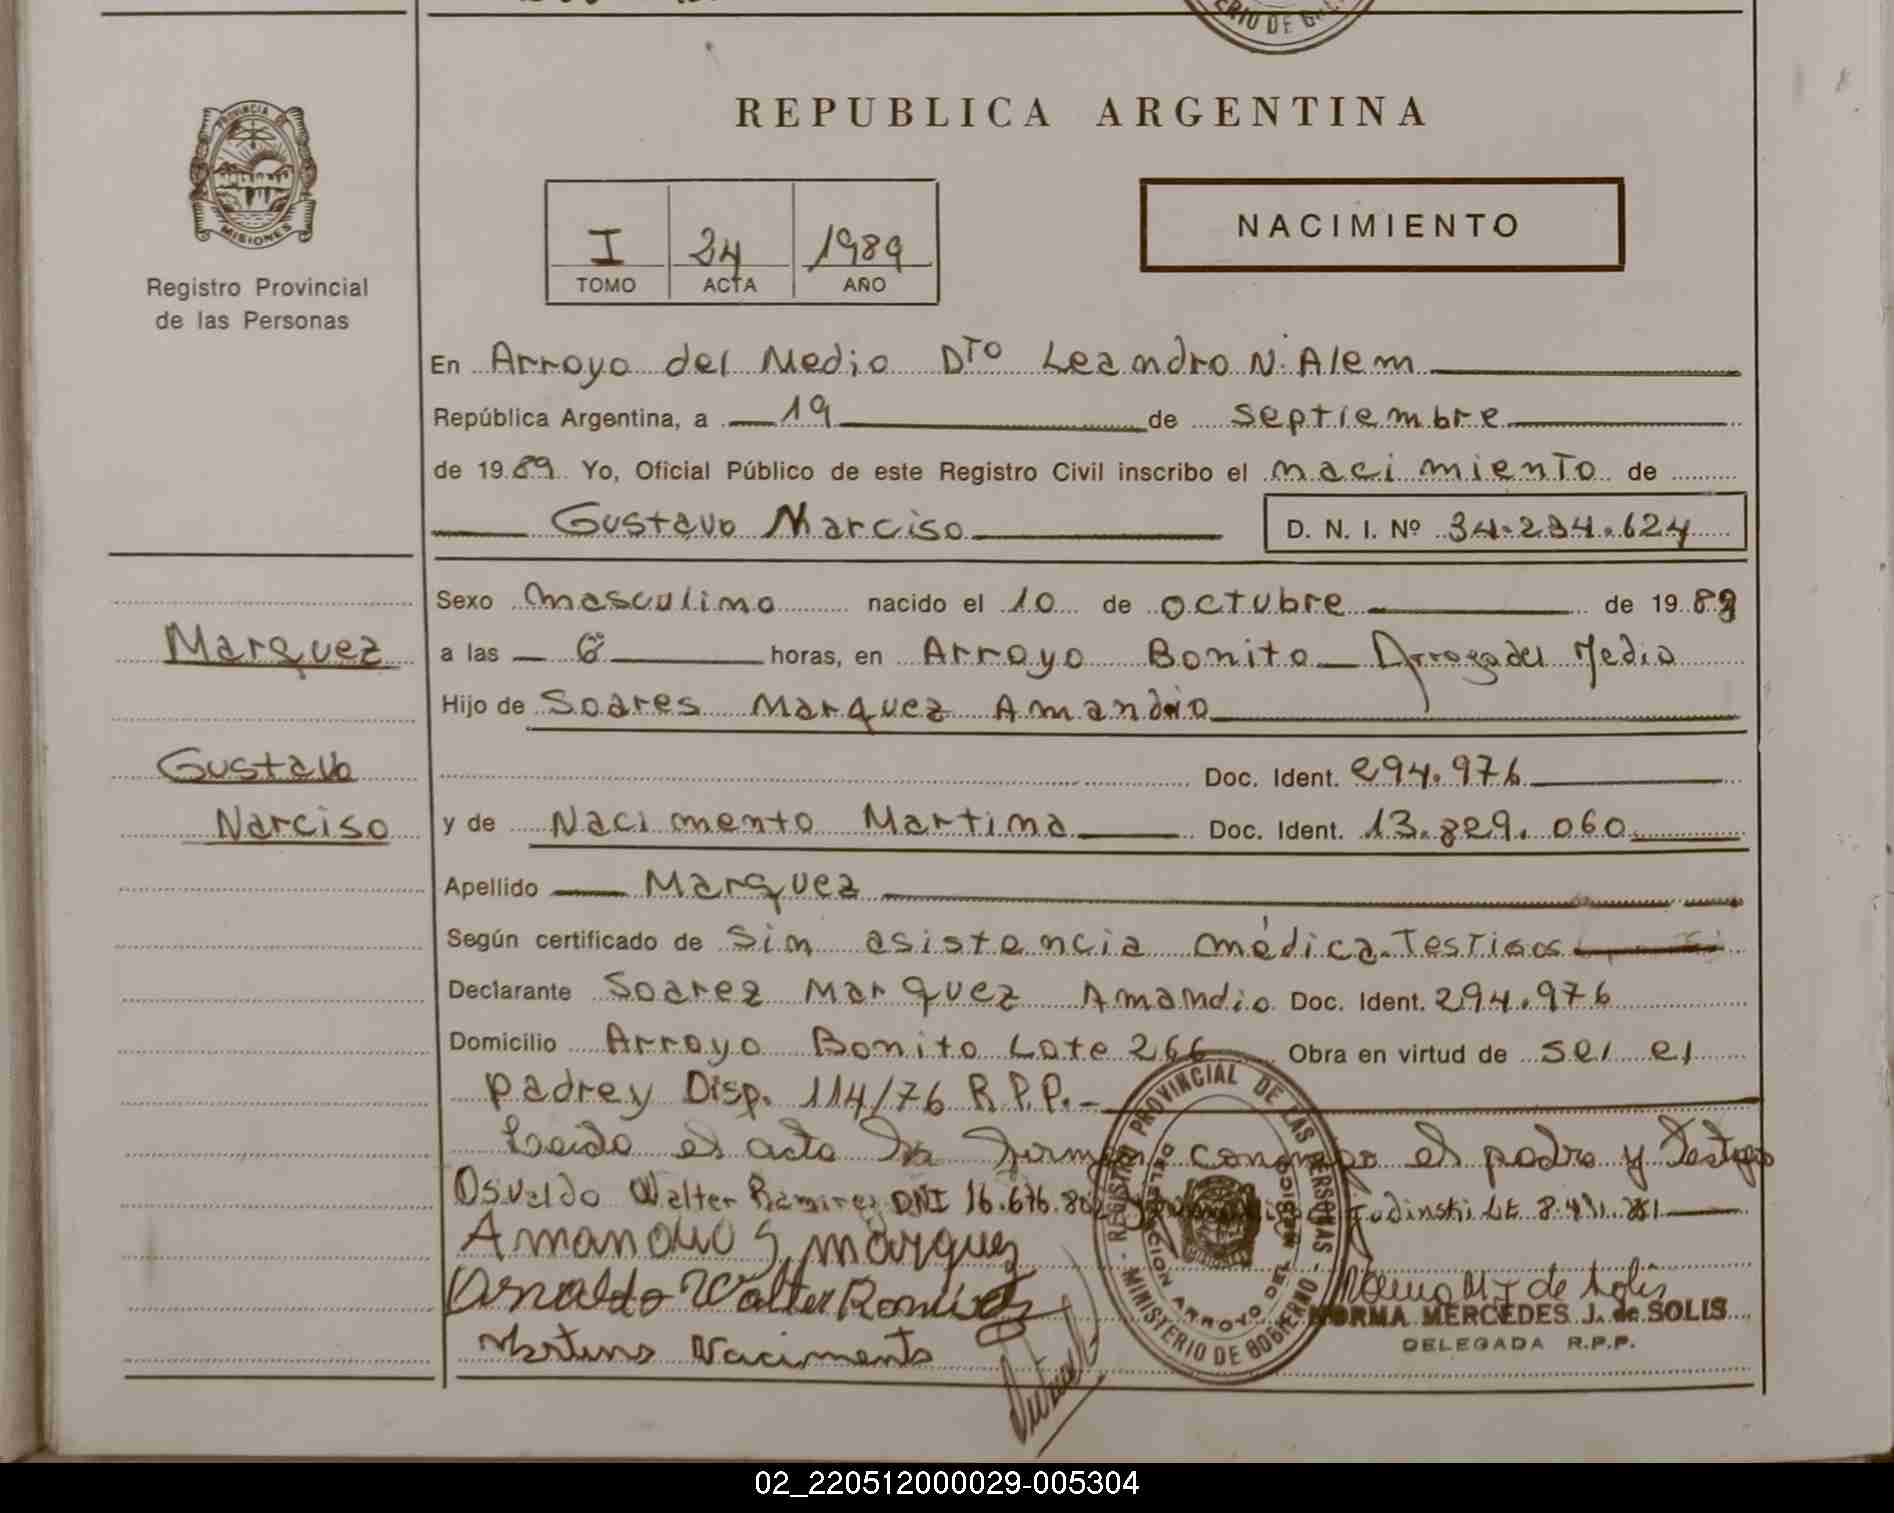 REPUBLICA ARGENTINA
PROVINCIA DE
MISIONES
Registro Provincial
de las Personas
I 34 1989
TOMO ACTA AÑO
NACIMIENTO
En Arroyo del Medio Dto Leandro N. Alem
República Argentina, a 19 de septiembre
de 1989 Yo, Oficial Público de este Registro Civil inscribo el nacimiento de
Gustavo Narciso D. N. I. Nº 34.234.624
Sexo masculino nacido el 10 de octubre de 19
Marquez
a las 6 horas, en Arroyo Bonito Arroyo del Medio
Hijo de Soares Marquez Amandio
Gustavo
Doc. Ident. 294.976
Narciso
y de Nacimento Martina Doc. Ident. 13.829.060
Apellido Marquez
Según certificado de sin asistencia médica. Testigos
Declarante Soarez Marquez Amandio Doc. Ident. 294.976
Domicilio Arroyo Bonito Lote 266 Obra en virtud de ser el
padre y Disp. 114/76 R.P.P.-
Leida el acta la firman conmigo el padre y testigos
Osvaldo Walter Ramirez DNI 16.676. LE 8.
Amandio S. marquez
Osvaldo Walter Ramirez
Martina Nacimento
REGISTRO PROVINCIAL DE LAS PERSONAS
MINISTERIO DE GOBIERNO
DELEGACION ARROYO DEL MEDIO
Norma M J de Solis
NORMA MERCEDES J. de SOLIS
DELEGADA R.P.P.
02_220512000029-005304